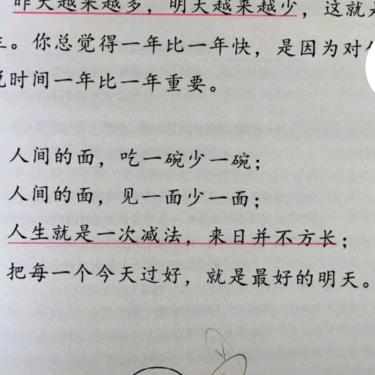 昨天越来越多，明天越来越少，这就是
。你总觉得一年比一年快，是因为对
时间一年比一年重要。
人间的面，吃一碗少一碗；
人间的面，见一面少一面；
人生就是一次减法，来日并不方长；
把每一个今天过好，就是最好的明天。